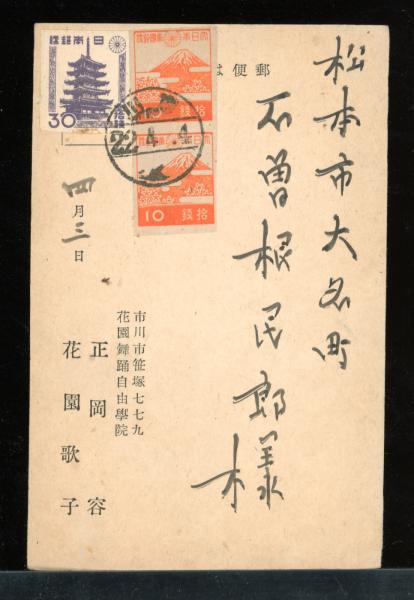 郵便は
松本市大名町
石曽根民郎様
大日本帝國郵便
拾錢
10
大日本帝國郵便
拾錢
10
日本郵便
30
22.4.4
四月三日
市川市笹塚七七九
花園舞踊自由學院
正岡容
花園歌子